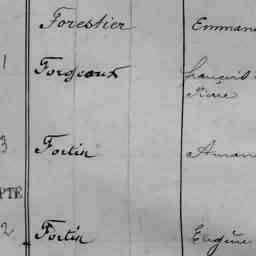 Forestier Emman
1 Forgeaux François
Pierre
3 Fortin Aman
PTE
2 Fortin Eugène